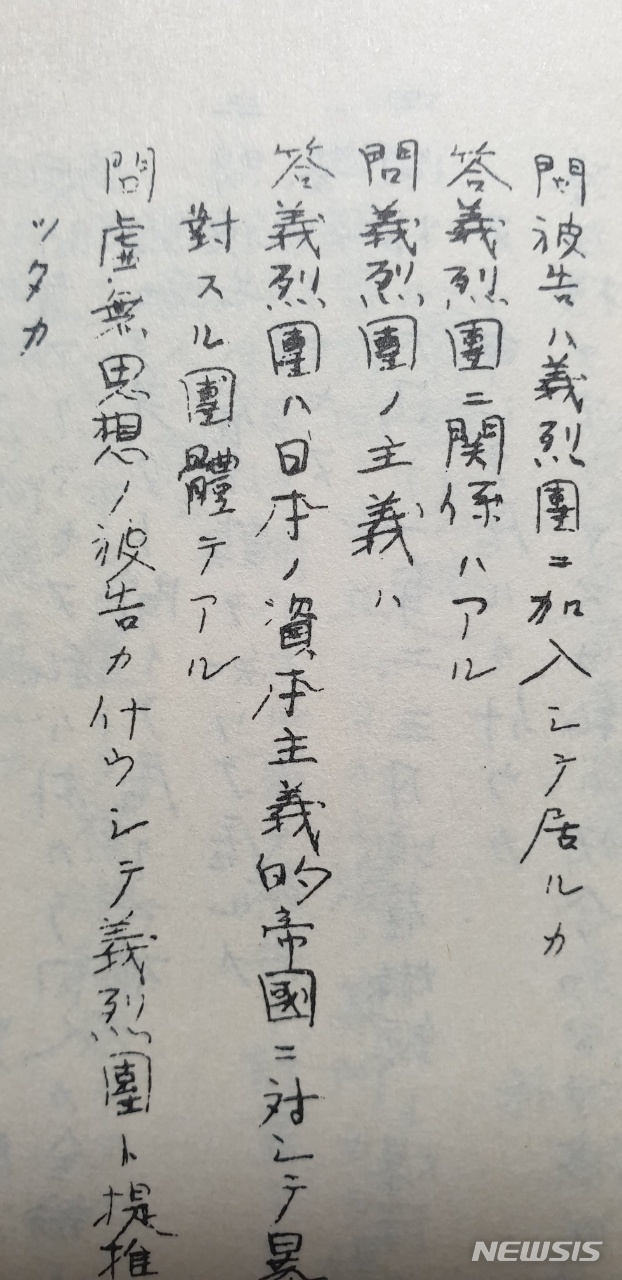 問被告ハ義烈團ニ加入シテ居ルカ
答義烈團ニ関係ハアル
問義烈團ノ主義ハ
答義烈團ハ日本ノ資本主義的帝國ニ対シテ暴
對スル團體テアル
問虚無思想ノ被告カ什ウシテ義烈團ト提推
ツタカ
NEWSIS